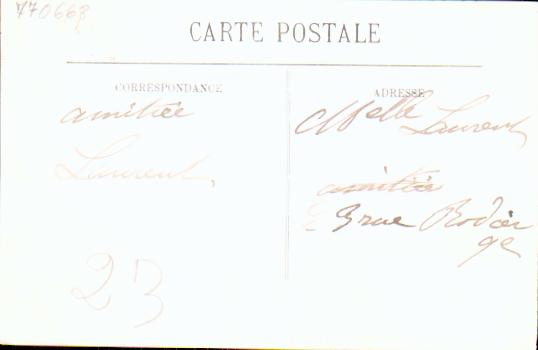 770668
CARTE POSTALE
CORRESPONDANCE
amitiée
Laurent
23
ADRESSE
Melle Laurent
amitiée
3 rue Rodier
ge